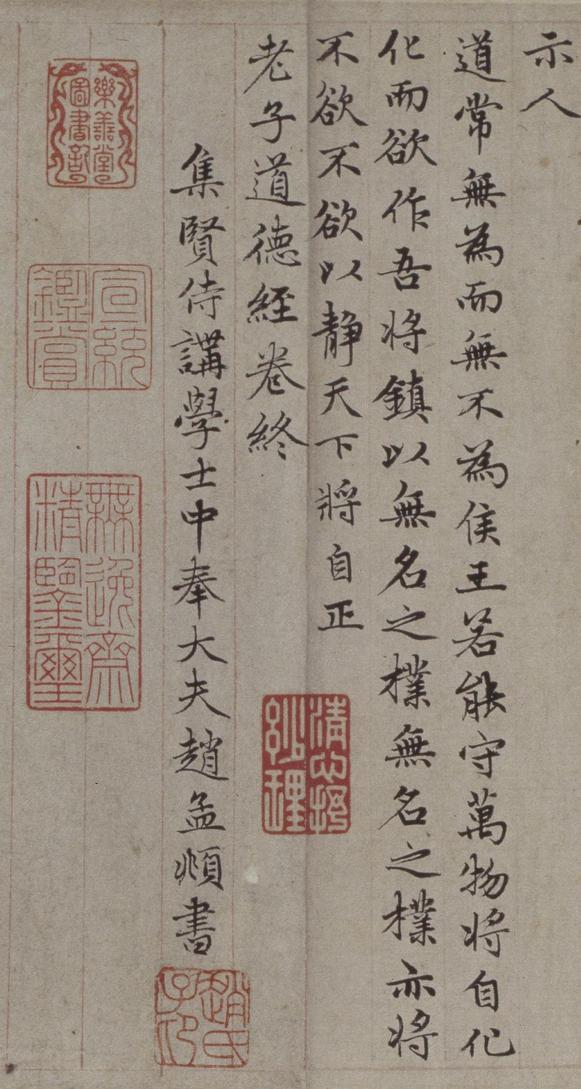 示人
道常無為而無不為侯王若能守萬物将自化
化而欲作吾将鎮以無名之樸無名之樸亦将
不欲不欲以静天下將自正
老子道德經卷終
清心抒妙理
集賢侍講學士中奉大夫趙孟頫書
趙氏子昂
樂善堂圖書記
宣統鑑賞
無逸齋精鑒璽